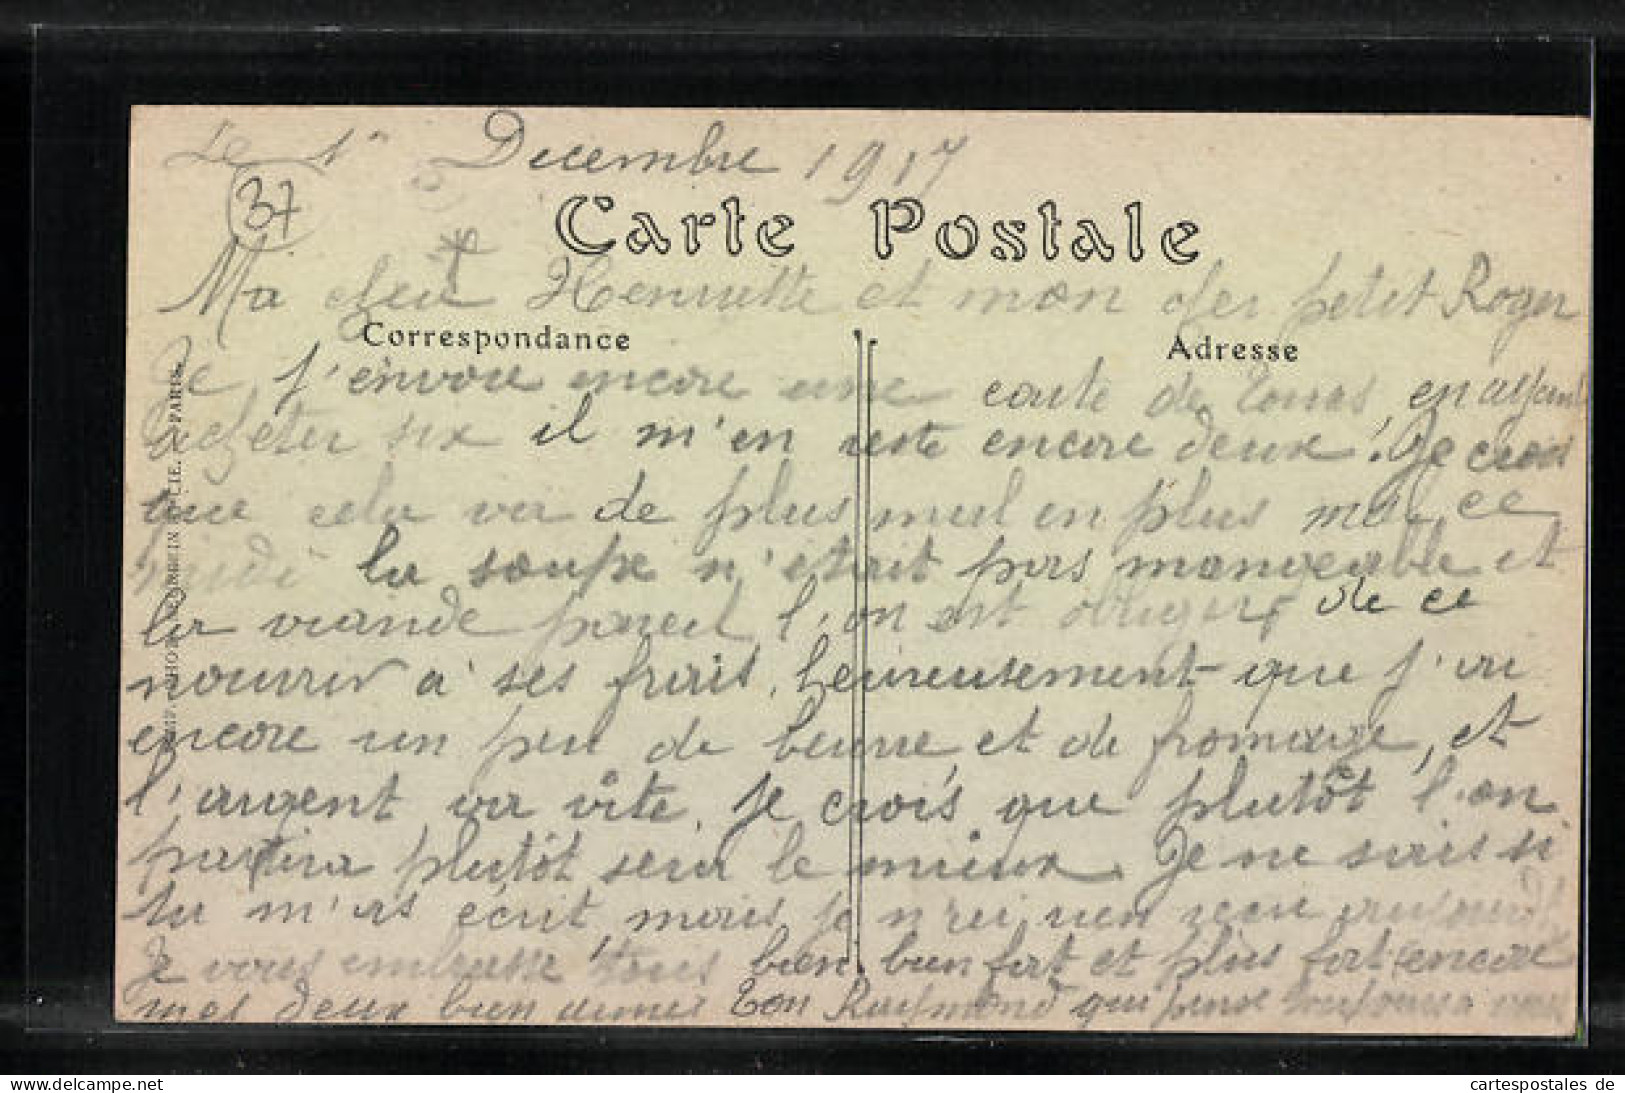 Le 1er Decembre 1917
37
Carte Postale
Ma cher Henriette et mon cher petit Roger
Correspondance
Adresse
Je t'envoie encore une carte de Tours, en ayant
acheter six il m'en reste encore deux! Je crois
que cela va de plus mal en plus mal, ce
midi la soupe n'était pas mangeable et
la viande pareil, l'on est obliger, de ce
nourrir à ses frais, heureusement que j'ai
encore un peu de beurre, et de fromage, et
l'argent va vite, je crois que plutôt l'on
partira plutôt sera le mieux. Je ne sais si
tu m'as écrit, mais je n'ai rien reçu aujourd'hui
Je vous embrasse tous bien, bien fort et plus fort encore
mes deux bien aimes Ton Raymond qui pense toujours a vous
PARIS.
cartespostales de
www.cartespostales.eu